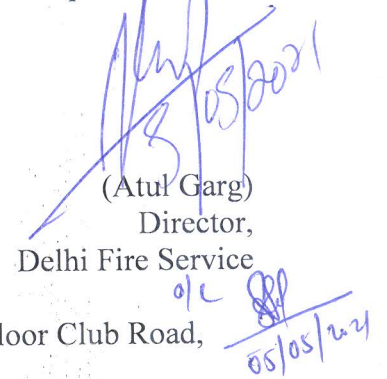 05/2021
(Atul Garg)
Director,
Delhi Fire Service
o/c
loor Club Road,
05/05/2021